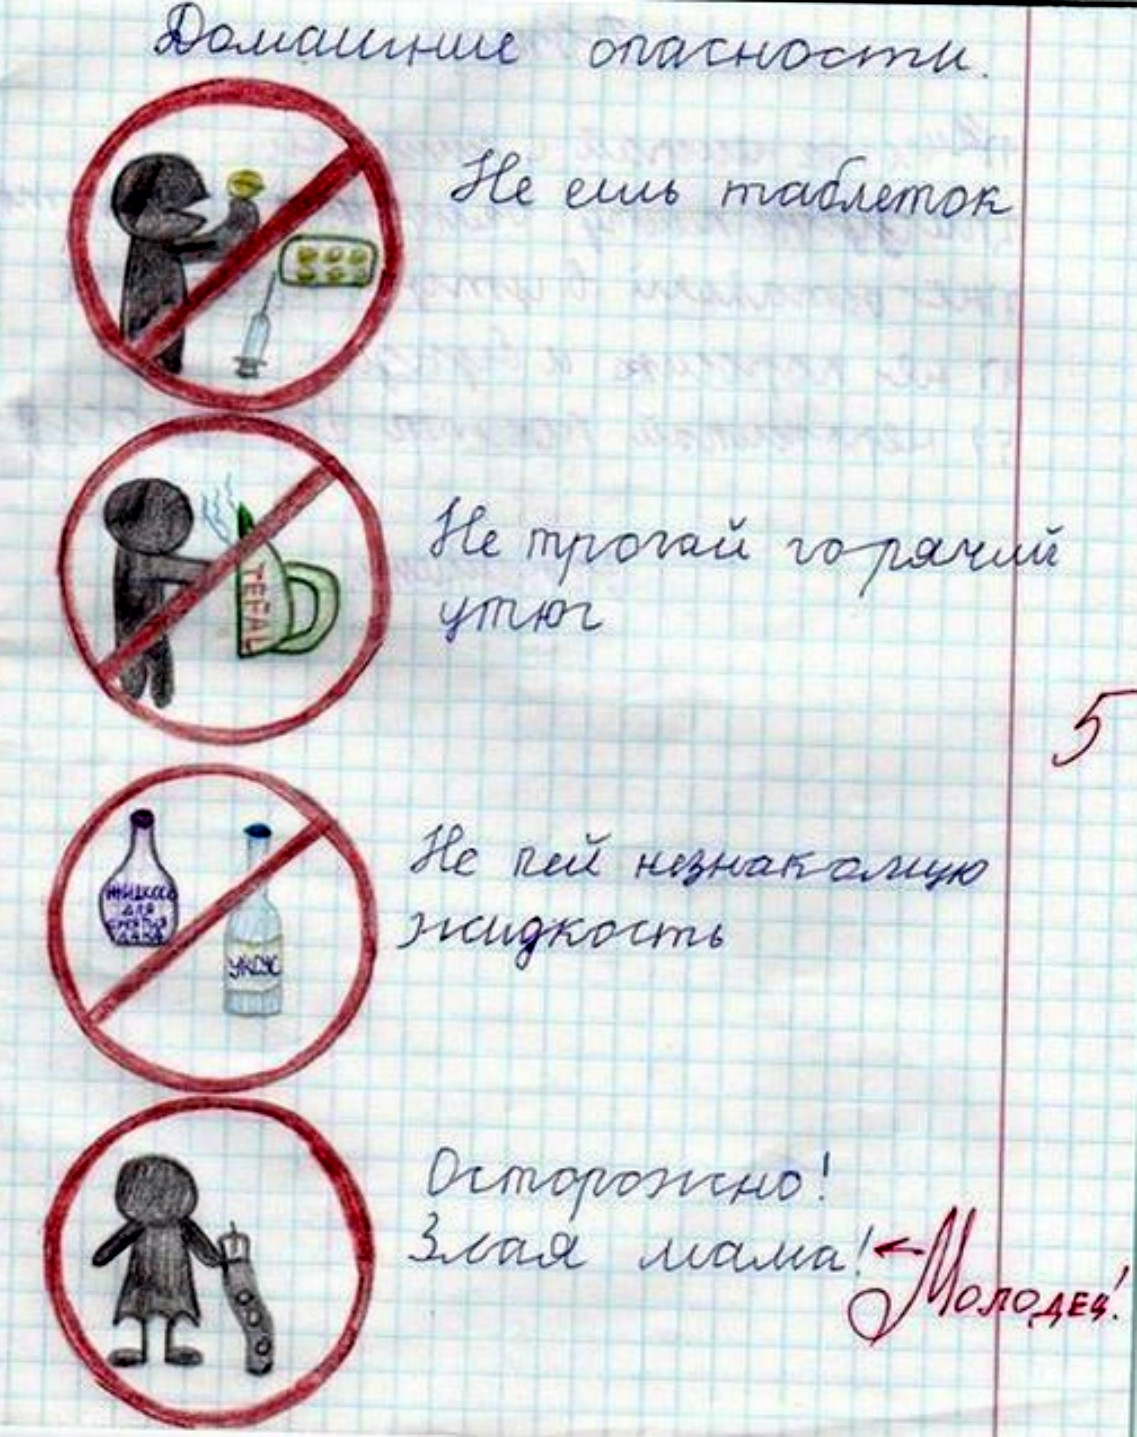 Домашние опасности.
Не ешь таблеток
TEFAL
Не трогай горячий
утюг
5
Не пей незнакомую
жидкость
для
УКСУС
Осторожно!
Злая мама!
Молодец!